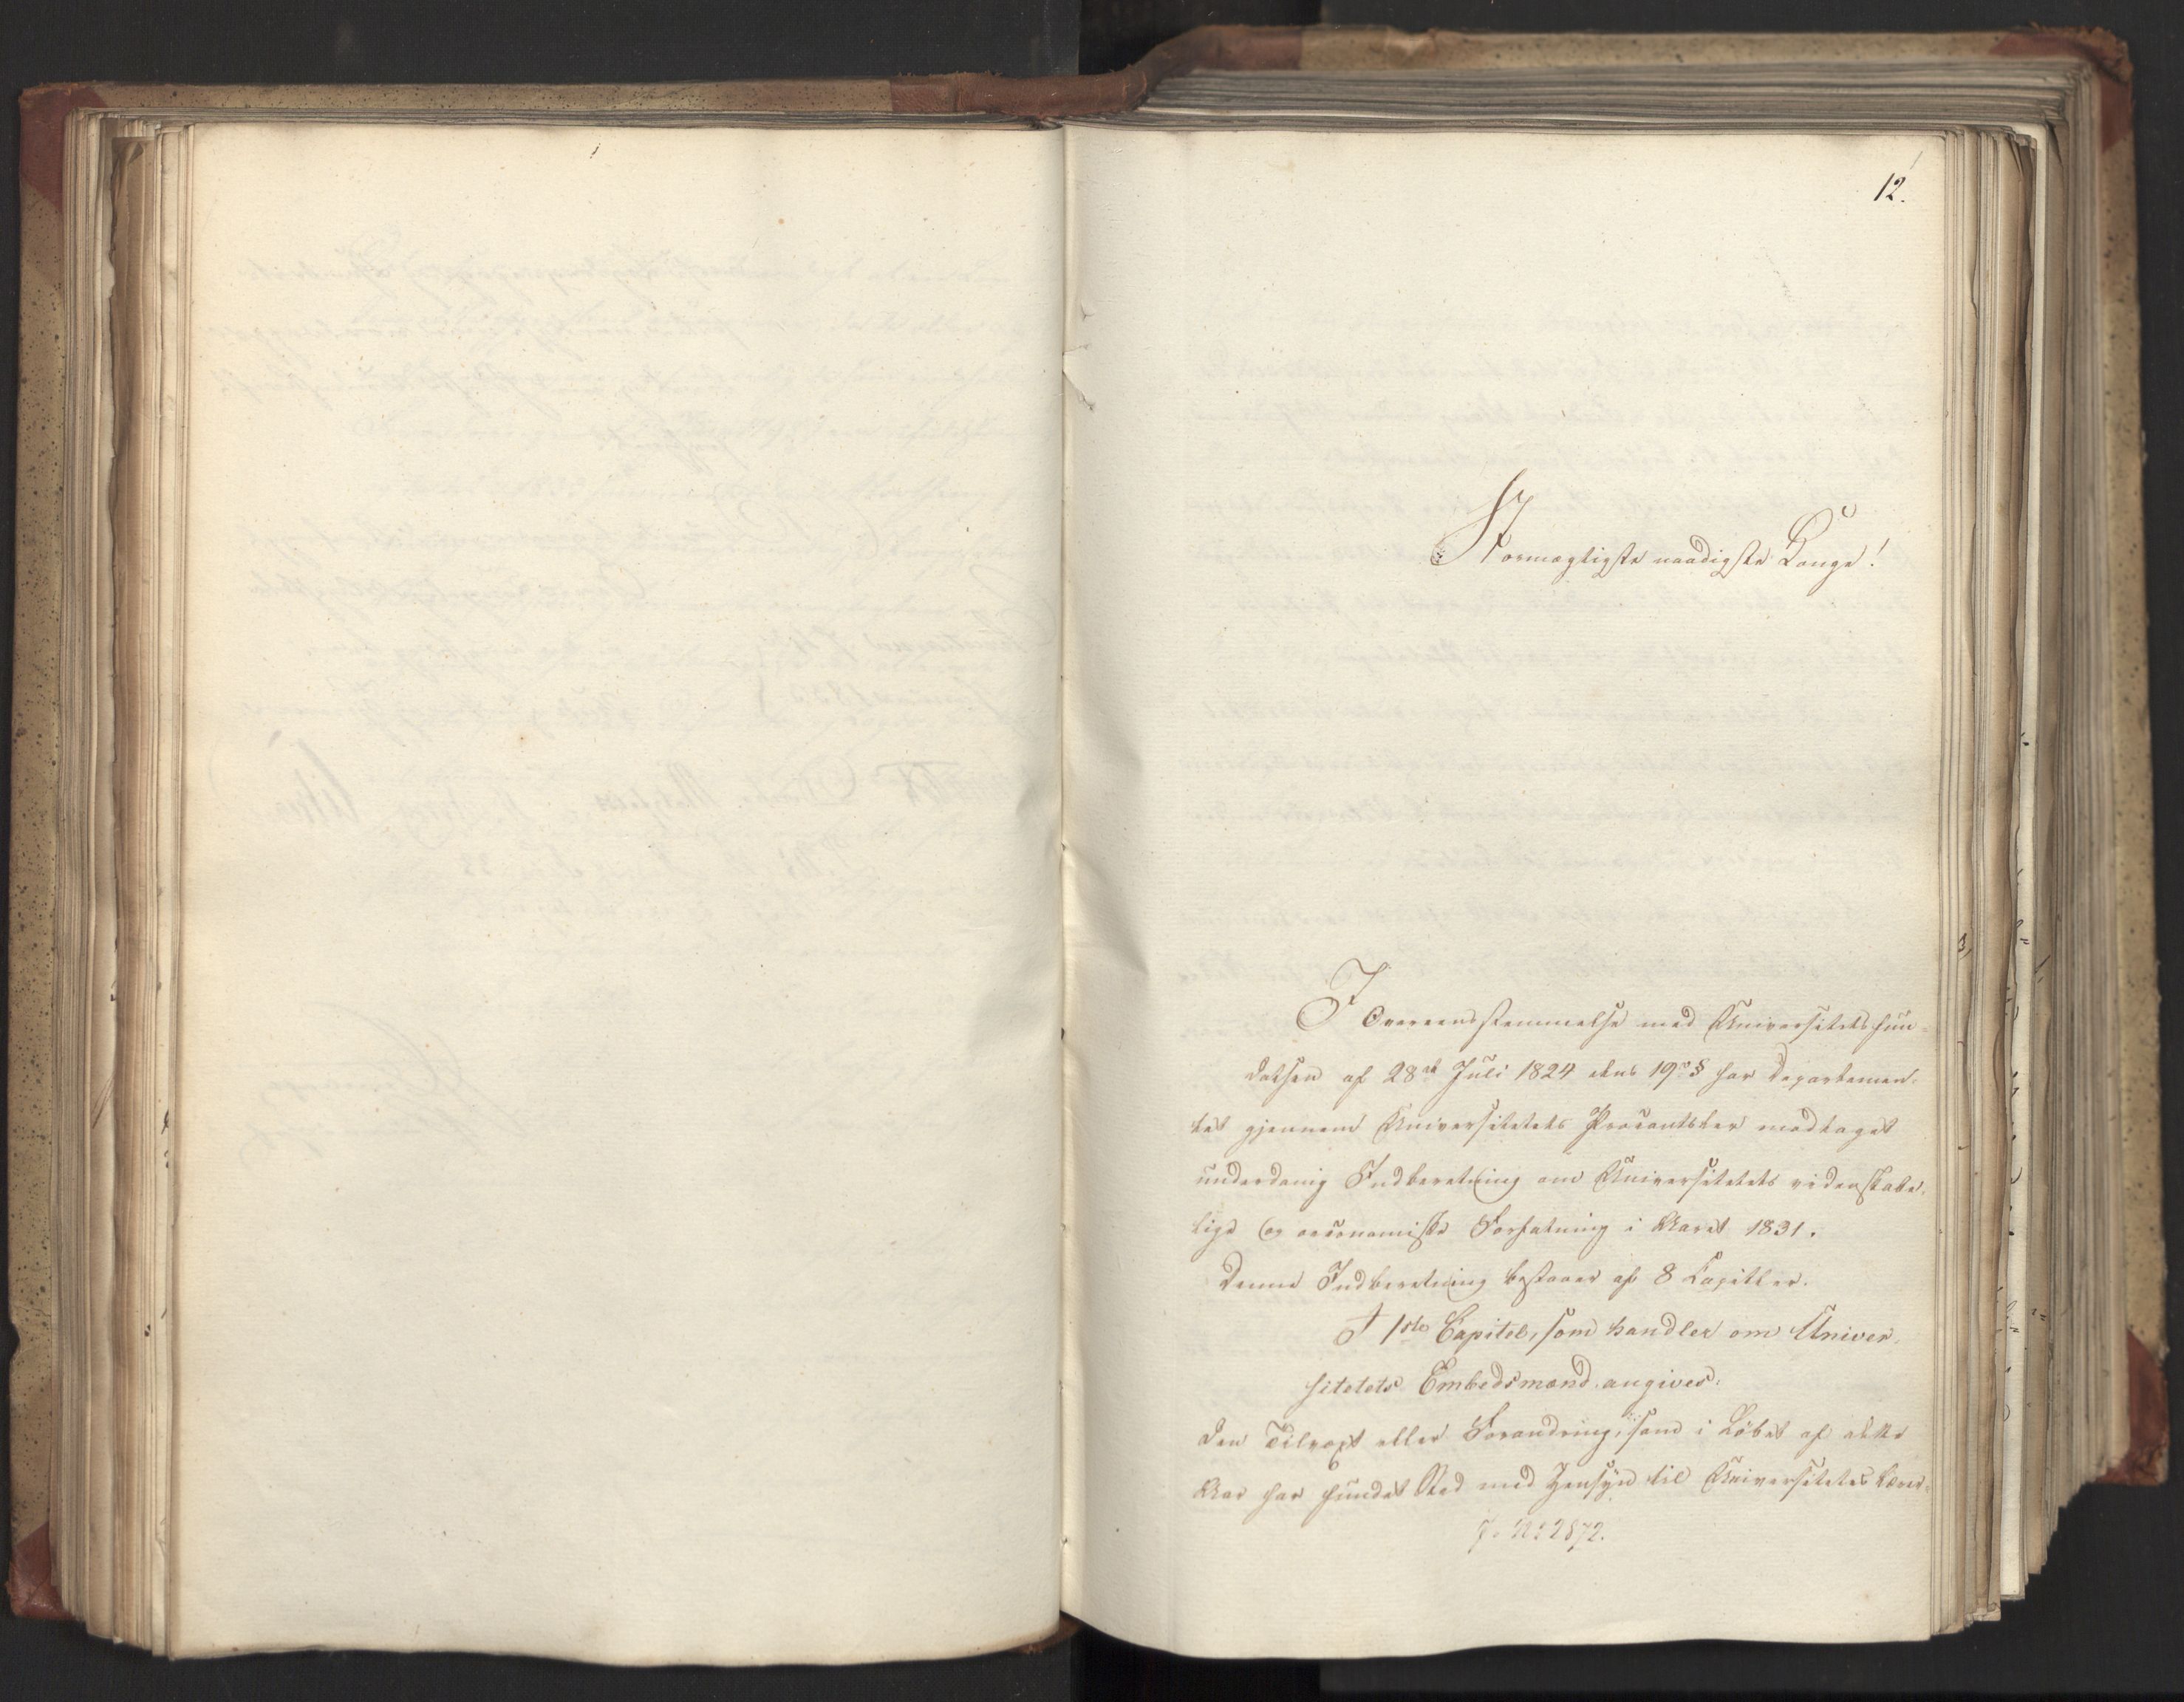 12.
Stormægtigste naadigste Konge!
I Overeensstemmelse med Universitetsfun-
datsen af 28de Juli 1824 dens 19de § har Departemen-
tet gjennem Universitetets Procantsler modtaget
underdanig Indberetning om Universitetets videnskabe-
lige og oeconomiske Forfatning i Aaret 1831.
Denne Indberetning bestaaer af 8 Capitler.
I 1ste Capitel, som handler om Univer-
sitetets Embedsmænd angives:
den Tilvæxt eller Forandring, som i Løbet af dette
Aar har fundet Sted med Hensyn til Universitetets Lærer-
J. No 2872.